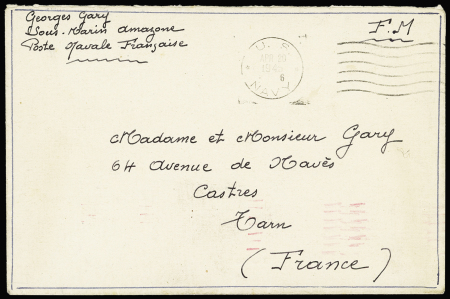 Georges Gary
Sous-Marin Amazone
Poste Navale Française
U.S.
NAVY
F.M
Madame et Monsieur Gary
64 Avenue de Navès
Castres
Tarn
(France)